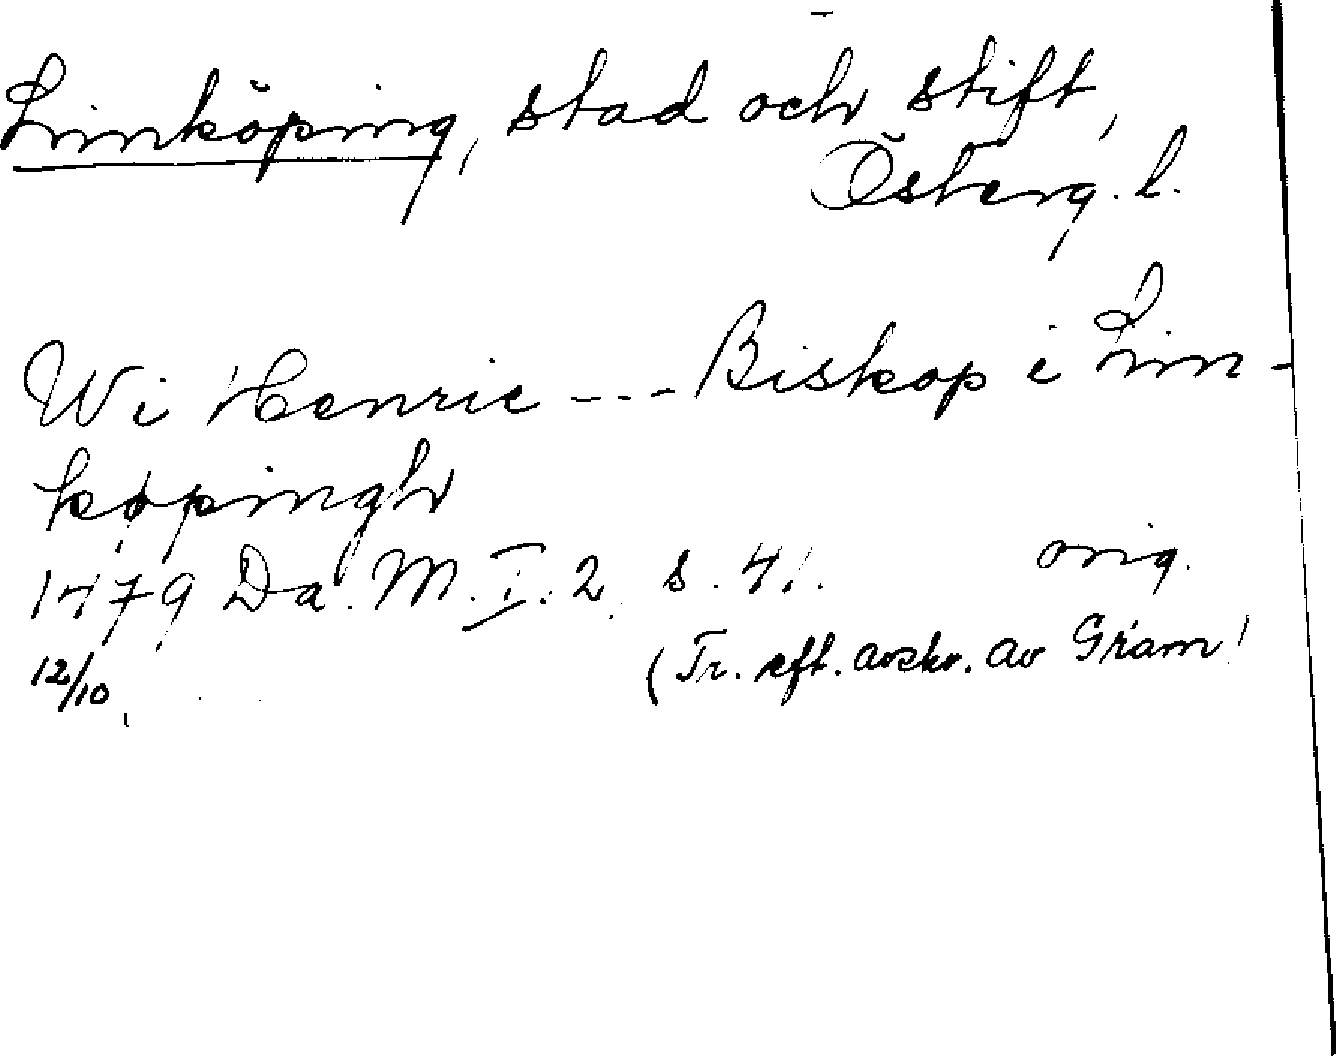 Linköping, stad och stift,
Österg. l.
Wi Henric --- Biskop i Lin-
køpingh
1479 Da. M. I. 2 s. 41. orig.
12/10 (Tr. eft. avskr. av Gram)